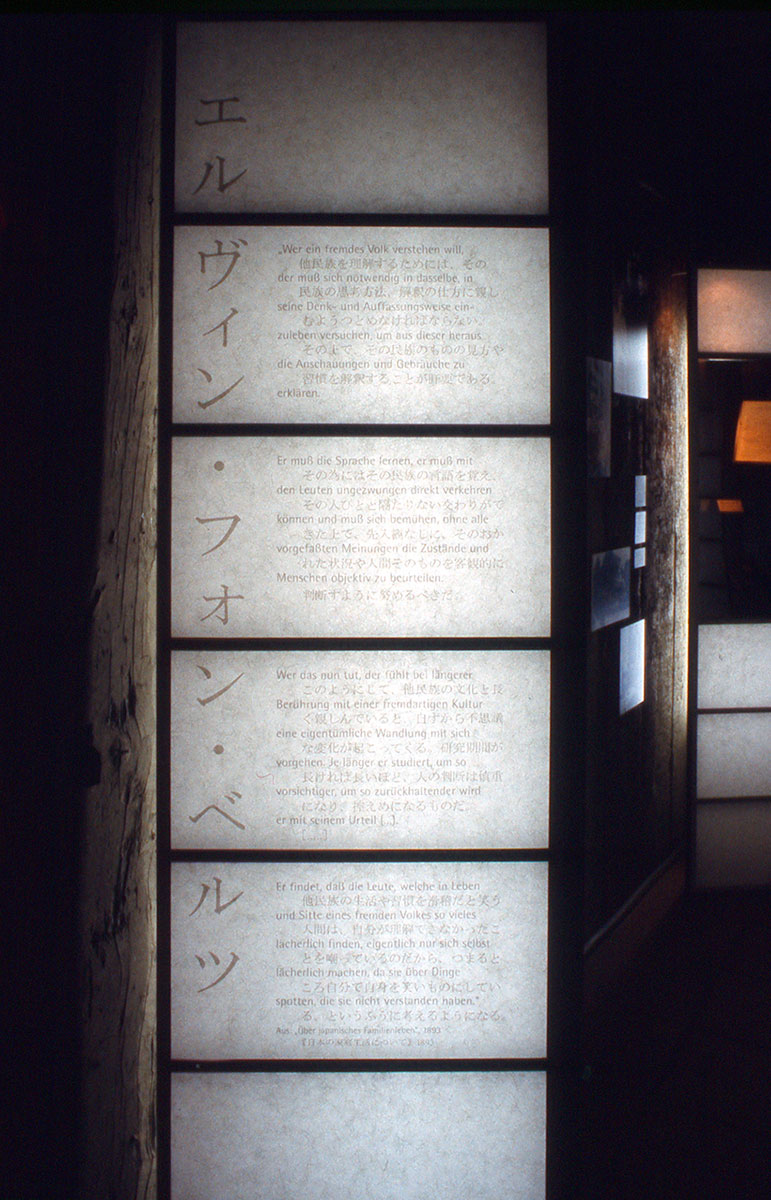 エルヴィン・フォン・ベルツ
„Wer ein fremdes Volk verstehen will,
他民族を理解するためには、その
der muß sich notwendig in dasselbe, in
民族の思考方法、解釈の仕方に親し
seine Denk- und Auffassungsweise ein-
むようつとめなければならない。
zuleben versuchen, um aus dieser heraus
その上で、その民族のものの見方や
die Anschauungen und Gebräuche zu
習慣を解釈することが肝要である。
erklären.
Er muß die Sprache lernen, er muß mit
その為にはその民族の言語を覚え、
den Leuten ungezwungen direkt verkehren
その人びとと隔たりないまじわりがで
können und muß sich bemühen, ohne alle
きた上で、先入観なしに、そのおか
vorgefaßten Meinungen die Zustände und
れた状況や人間そのものを客観的に
Menschen objektiv zu beurteilen.
判断すように努めるべきだ。
Wer das nun tut, der fühlt bei längerer
このようにして、他民族の文化と長
Berührung mit einer fremdartigen Kultur
く親しんでいると、自ずから不思議
eine eigentümliche Wandlung mit sich
な変化が起こってくる。研究期間が
vorgehen. Je länger er studiert, um so
長ければ長いほど、人の判断は慎重
vorsichtiger, um so zurückhaltender wird
になり、控えめになるものだ。
er mit seinem Urteil [...].
[.....]
Er findet, daß die Leute, welche in Leben
他民族の生活や習慣を滑稽だと笑う
und Sitte eines fremden Volkes so vieles
人間は、自分が理解できなかったこ
lächerlich finden, eigentlich nur sich selbst
とを嘲っているのだから、つまると
lächerlich machen, da sie über Dinge
ころ自分で自身を笑いものにしてい
spotten, die sie nicht verstanden haben."
る、というふうに考えるようになる。
Aus: „Über japanisches Familienleben", 1893
《日本の家庭生活について》1893